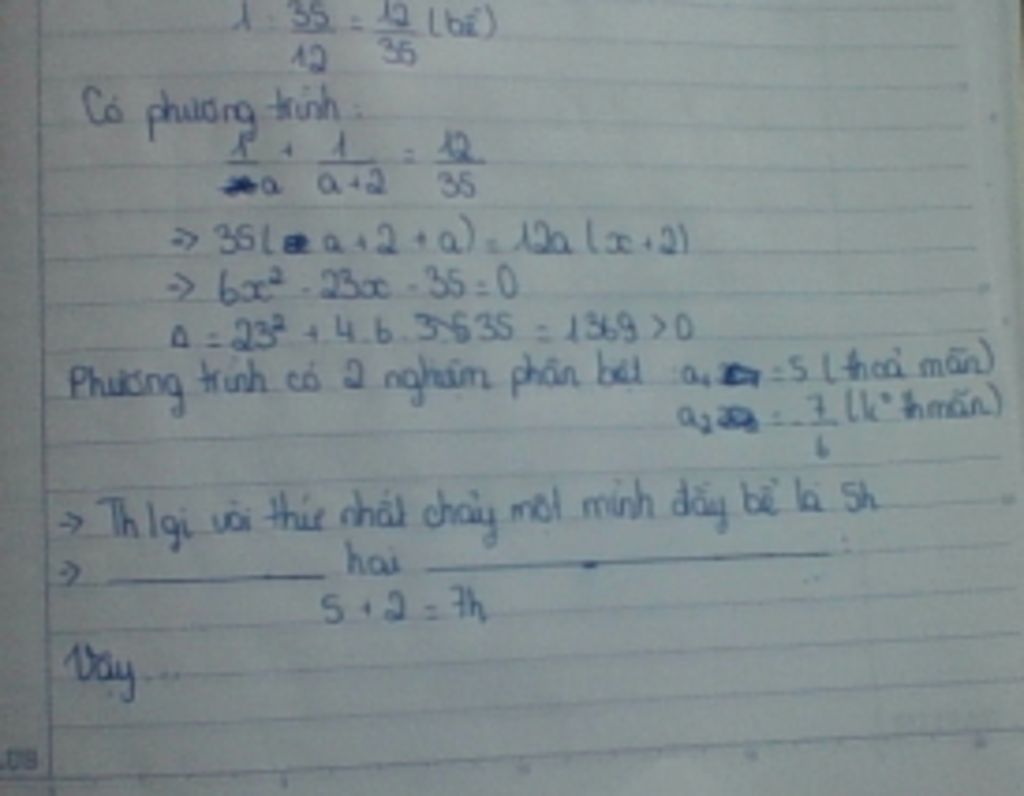 1 : 35/12 = 12/35 (bể)
Có phương trình:
1/a + 1/(a+2) = 12/35
=> 35(a + 2 + a) = 12a (x+2)
=> 6x² - 23x - 35 = 0
Δ = 23² + 4.6. 35 = 1369 > 0
Phương trình có 2 nghiệm phân biệt a₁ = 5 (thoả mãn)
a₂ = -7/6 (k° thmãn)
=> Th/gi vòi thứ nhất chảy một mình đầy bể là 5h
=> hai :
5 + 2 = 7h
Vậy ...